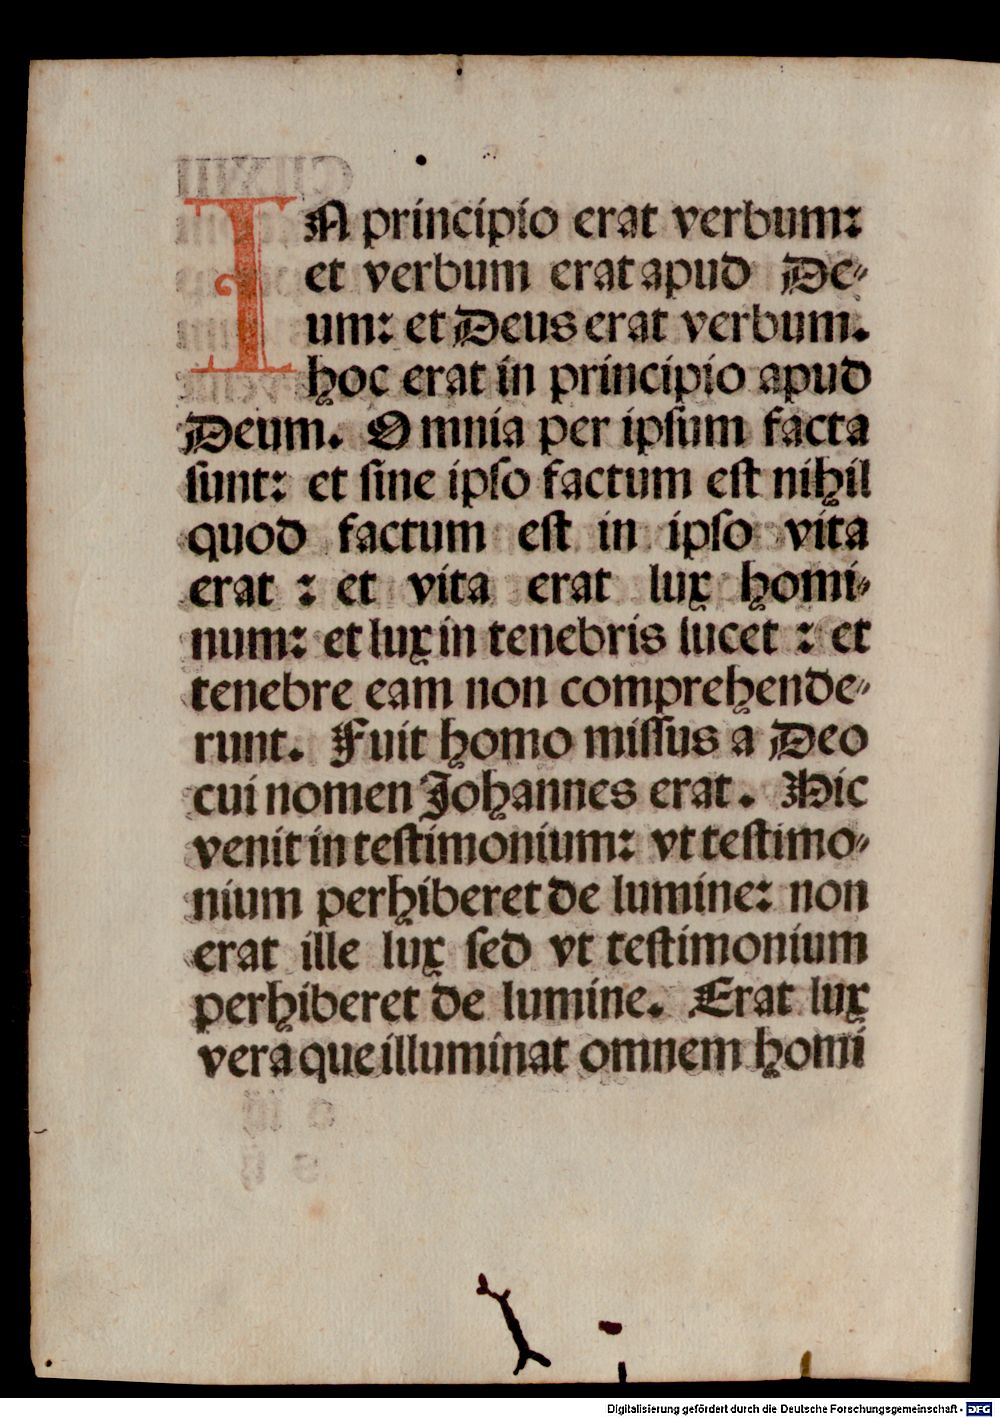 IN principio erat verbum:
et verbum erat apud De-
um: et Deus erat verbum.
hoc erat in principio apud
Deum. Omnia per ipsum facta
sunt: et sine ipso factum est nihil
quod factum est in ipso vita
erat : et vita erat lux homi-
num: et lux in tenebris lucet : et
tenebre eam non comprehende-
runt. Fuit homo missus a Deo
cui nomen Johannes erat. Hic
venit in testimonium: vt testimo-
nium perhiberet de lumine: non
erat ille lux sed vt testimonium
perhiberet de lumine. Erat lux
vera que illuminat omnem homi
Digitalisierung gefördert durch die Deutsche Forschungsgemeinschaft - DFG